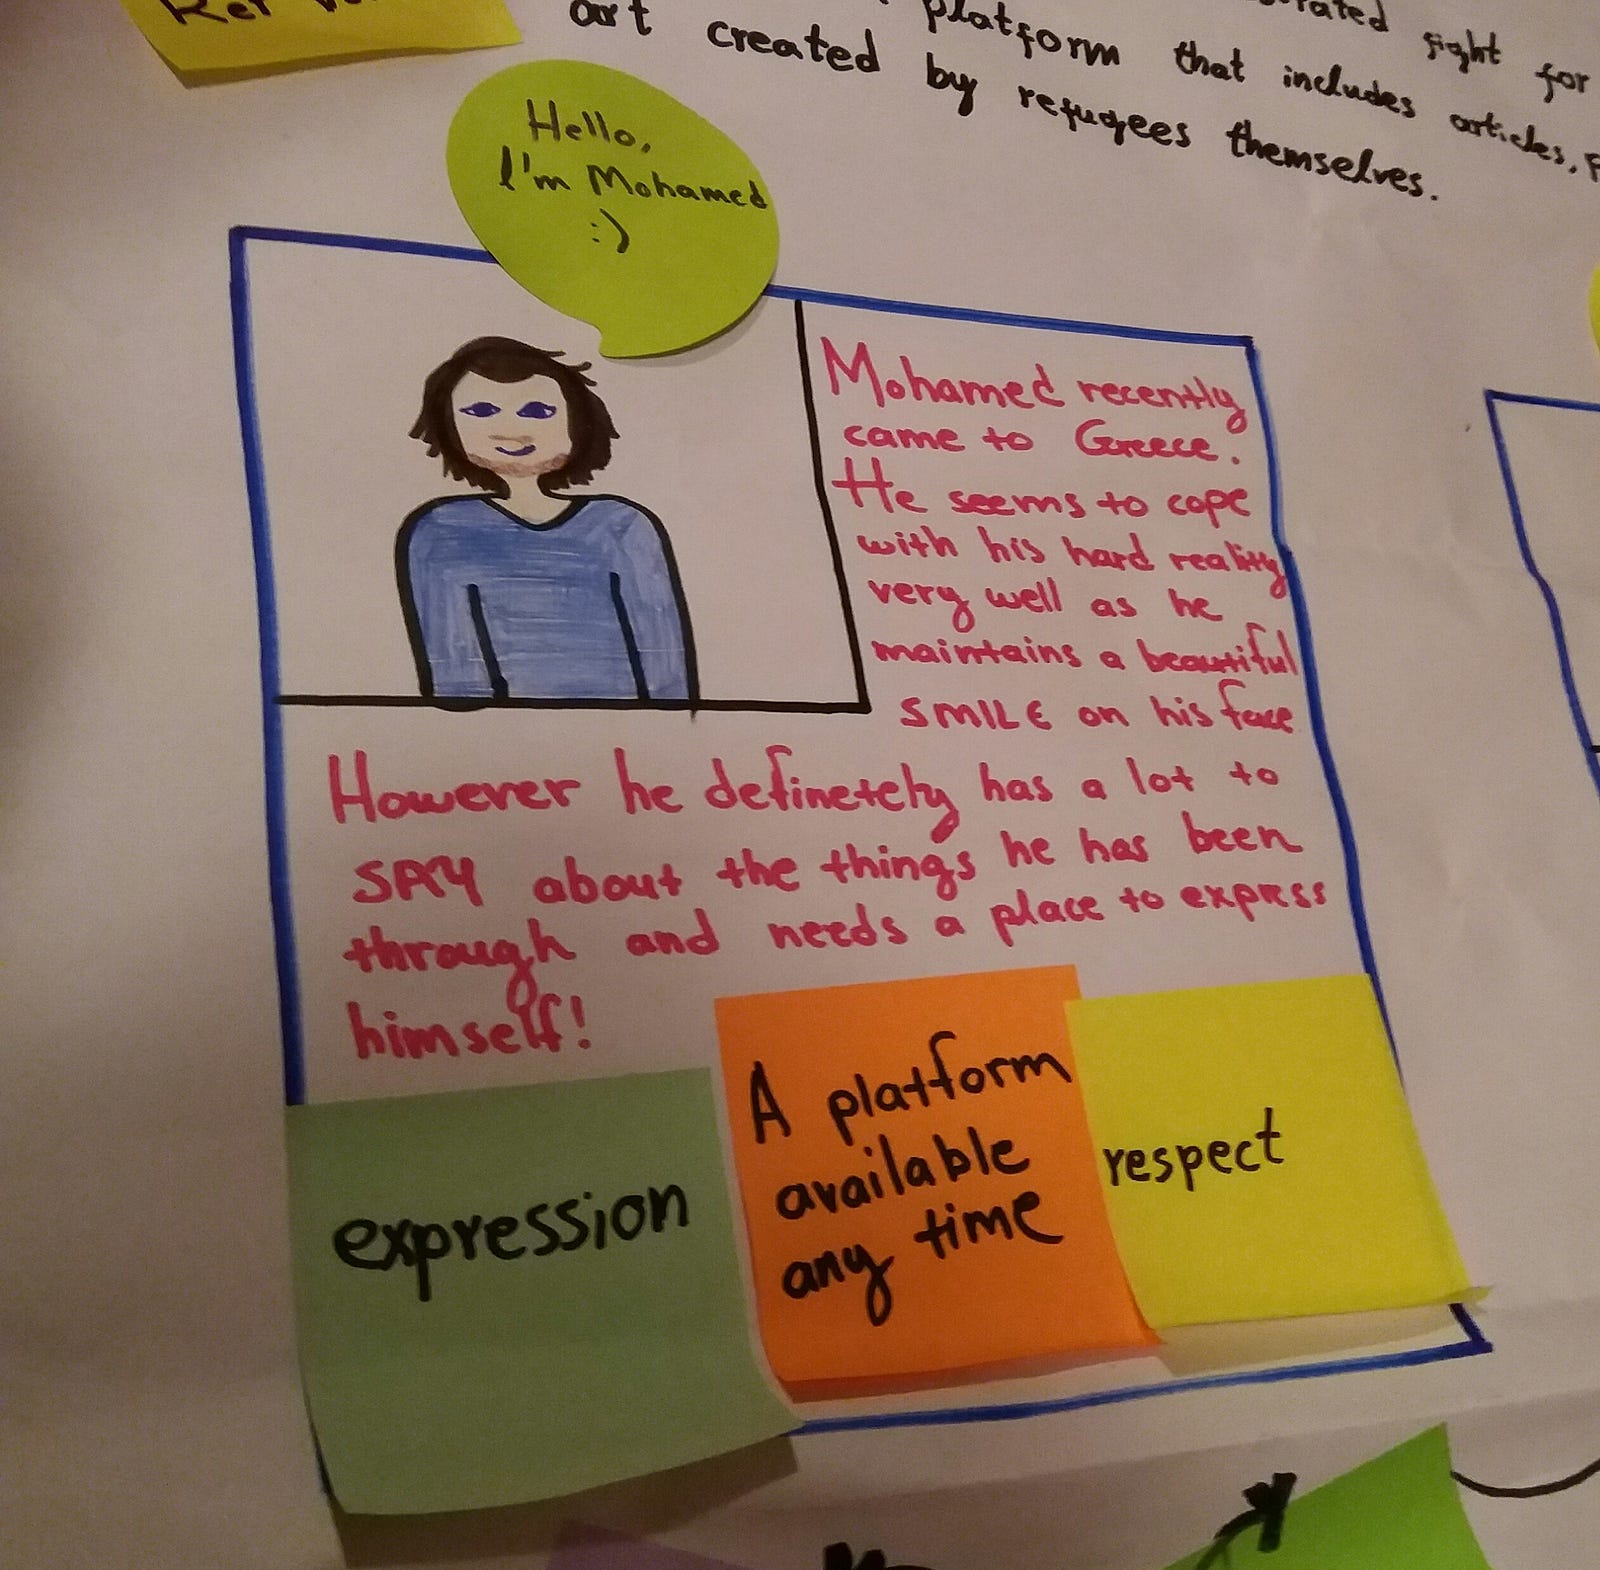 fight for
platform that includes articles,
art created by refugees themselves.
Hello,
I'm Mohamed
:)
Mohamed recently
came to Greece.
He seems to cope
with his hard reality
very well as he
maintains a beautiful
SMILE on his face
However he definetely has a lot to
SAY about the things he has been
through and needs a place to express
himself!
expression
A platform
available
any time
respect